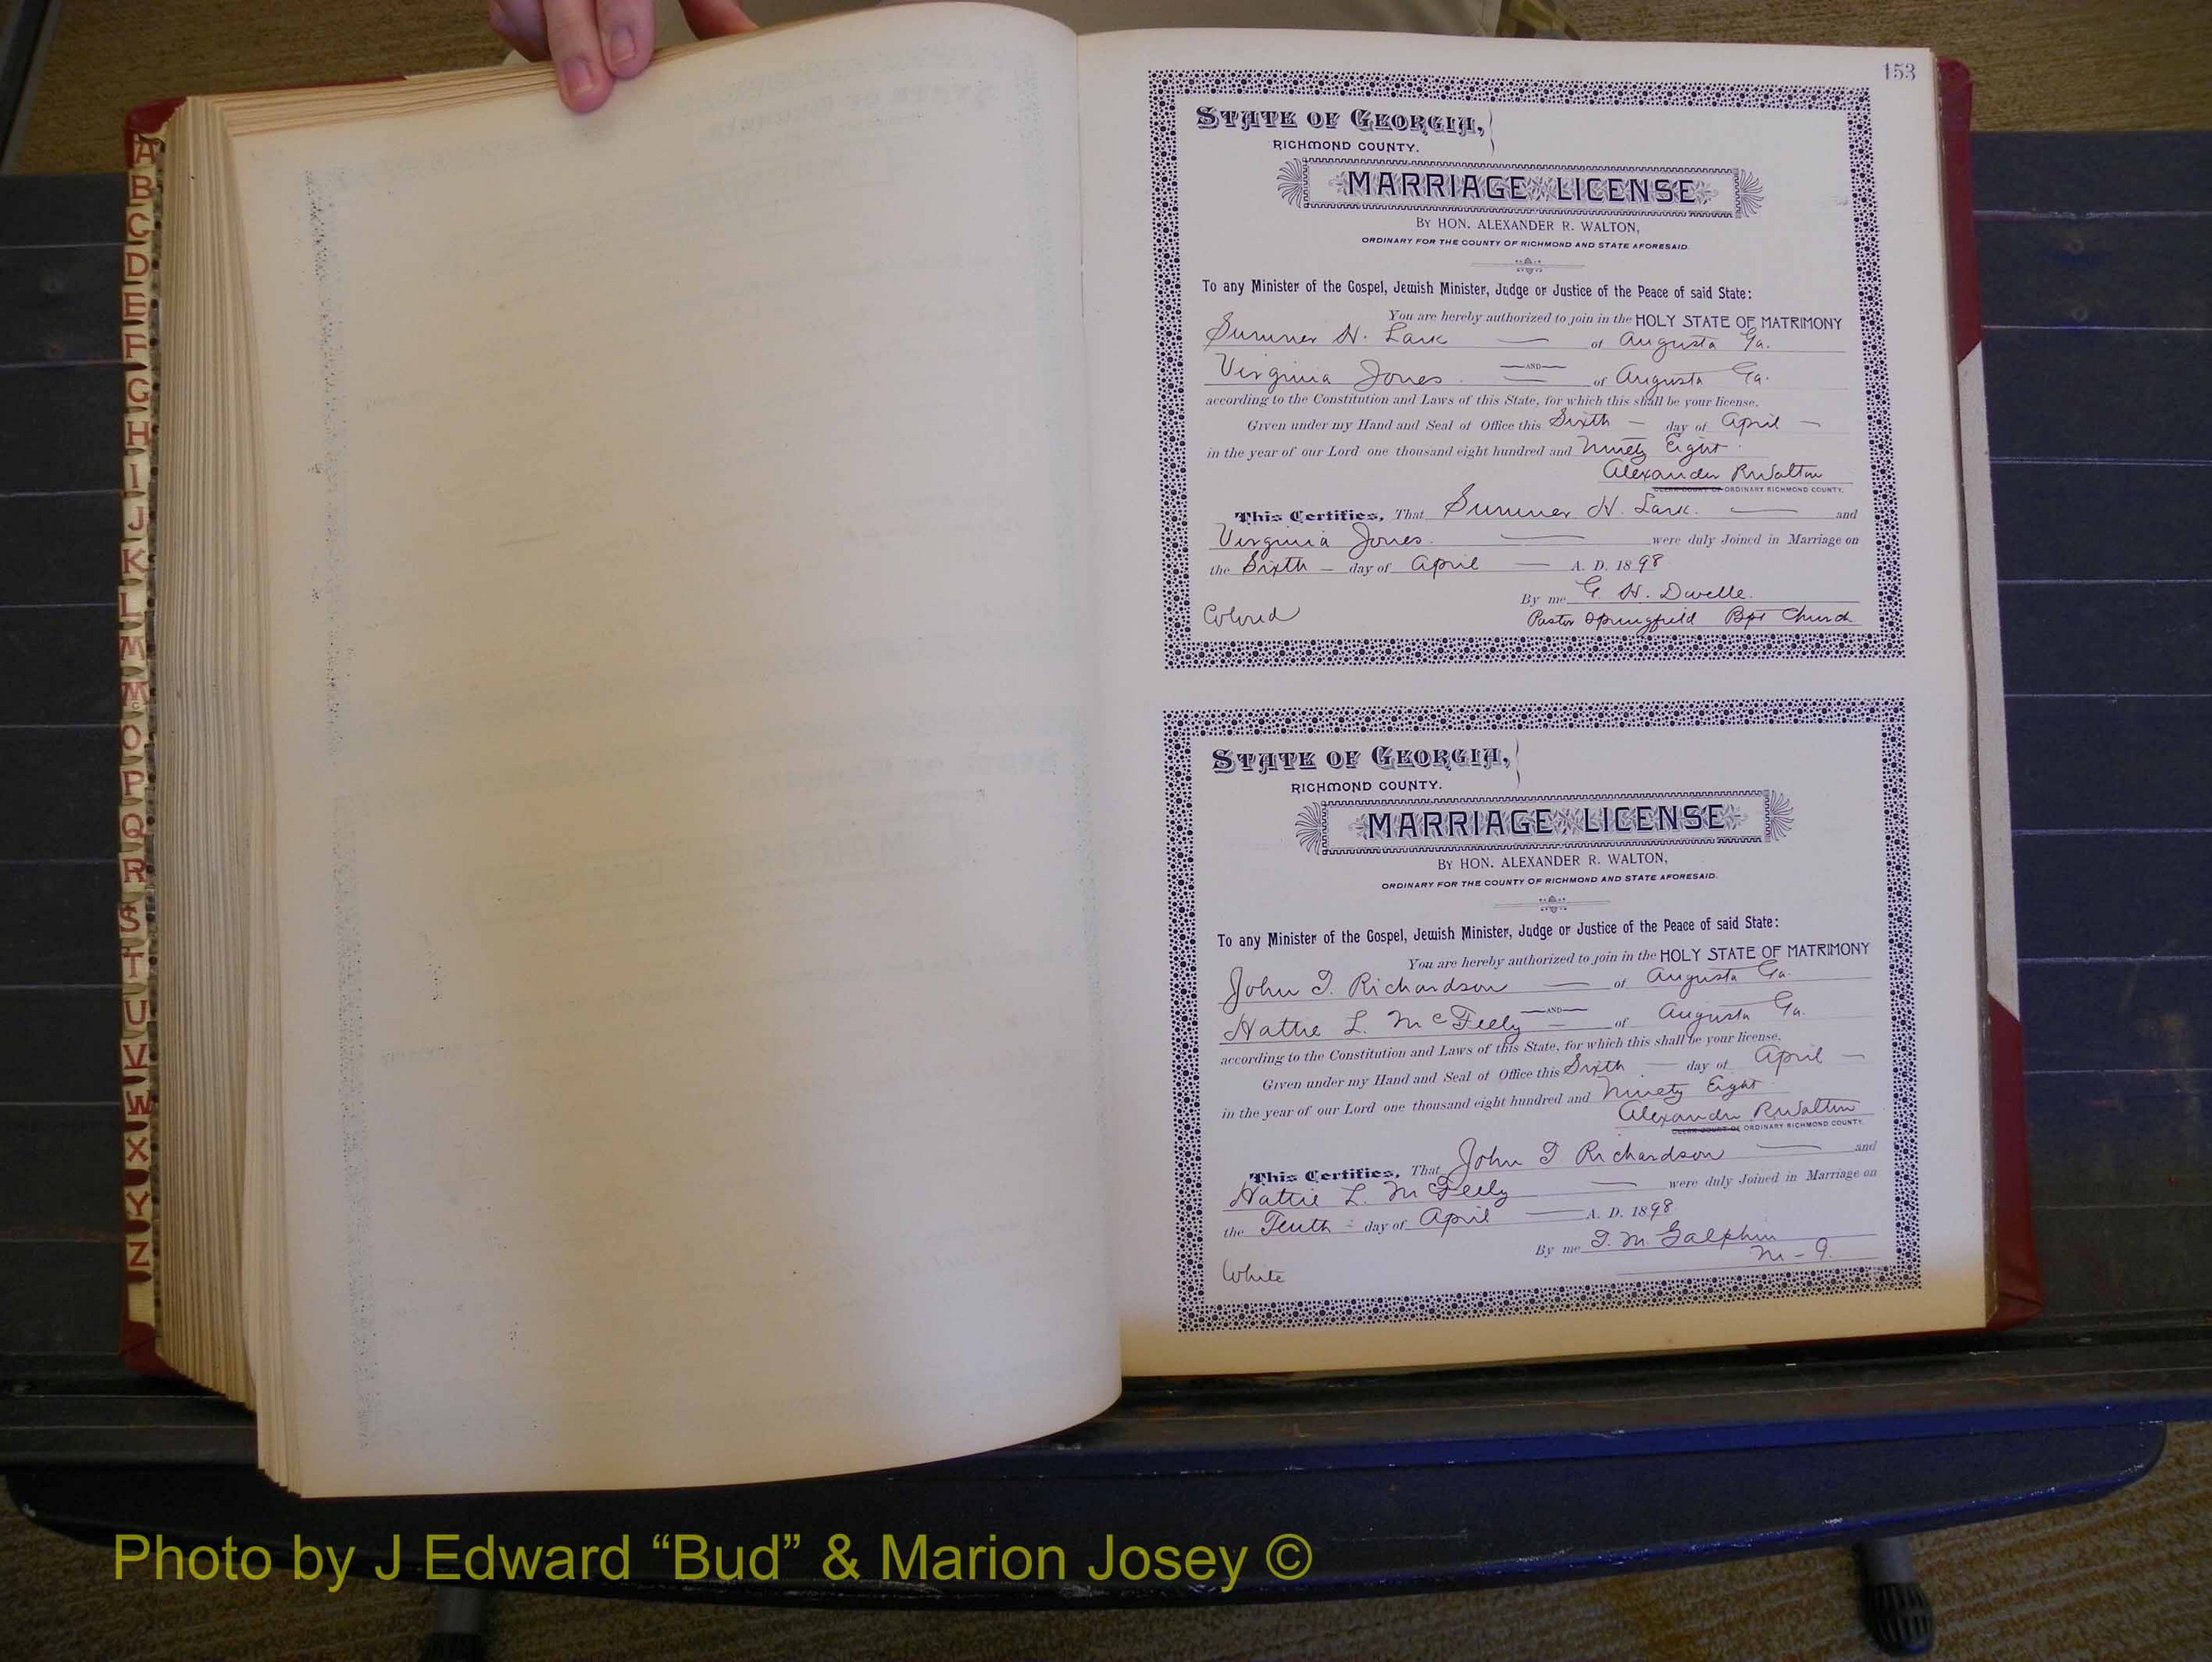 A
B
C
D
E
F
G
H
I
J
K
L
M
Mc
O
P
Q
R
S
T
U
V
W
X
Y
Z
153
STATE OF GEORGIA,
RICHMOND COUNTY.
MARRIAGE LICENSE
BY HON. ALEXANDER R. WALTON,
ORDINARY FOR THE COUNTY OF RICHMOND AND STATE AFORESAID.
To any Minister of the Gospel, Jewish Minister, Judge or Justice of the Peace of said State:
You are hereby authorized to join in the HOLY STATE OF MATRIMONY
Sumner H. Lark — of Augusta Ga.
—AND—
Virginia Jones. — of Augusta Ga.
according to the Constitution and Laws of this State, for which this shall be your license.
Given under my Hand and Seal of Office this Sixth — day of April —
in the year of our Lord one thousand eight hundred and Ninety Eight
Alexander R Walton
CLERK COURT OF ORDINARY RICHMOND COUNTY.
This Certifies, That Sumner H. Lark. — and
Virginia Jones. — were duly Joined in Marriage on
the Sixth — day of April — A. D. 1898
By me G. H. Dwelle.
Colored Pastor Springfield Bpt Church
STATE OF GEORGIA,
RICHMOND COUNTY.
MARRIAGE LICENSE
BY HON. ALEXANDER R. WALTON,
ORDINARY FOR THE COUNTY OF RICHMOND AND STATE AFORESAID.
To any Minister of the Gospel, Jewish Minister, Judge or Justice of the Peace of said State:
You are hereby authorized to join in the HOLY STATE OF MATRIMONY
John T. Richardson — of Augusta Ga.
—AND—
Hattie L. McFeely — of Augusta Ga.
according to the Constitution and Laws of this State, for which this shall be your license.
Given under my Hand and Seal of Office this Sixth — day of April —
in the year of our Lord one thousand eight hundred and Ninety Eight
Alexander R Walton
CLERK COURT OF ORDINARY RICHMOND COUNTY.
This Certifies, That John T Richardson — and
Hattie L. McFeely — were duly Joined in Marriage on
the Tenth - day of April — A. D. 1898
By me T. M. Galphin
M - G.
White
Photo by J Edward “Bud” & Marion Josey ©